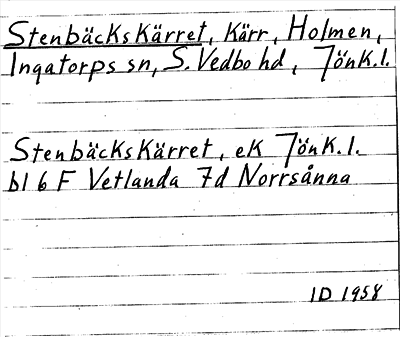 Stenbäckskärret, Kärr, Holmen,
Ingatorps sn, S. Vedbo hd, Jönk.l.
Stenbäckskärret, ek Jönk.l.
bl 6 F Vetlanda 7d Norrsånna
ID 1958